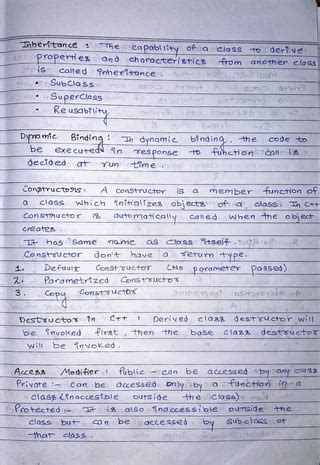 Inheritance : The capability of a class to derive
properties and characteristics from another class
is called inheritance.
• SubClass
• SuperClass
• Reusability
Dynamic Binding : In dynamic binding, the code to
be executed in response to function call is
decided at run time.
Constructors : A constructor is a member function of
a class which initializes objects of a class. In C++
Constructor is automatically called when the object
creates.
It has same name as class itself.
Constructor don't have a return type.
1. Default Constructor (No parameter passed)
2. Parametrized Constructor
3. Copy Constructor
Destructor in C++ : Derived class destructor will
be invoked first, then the base class destructor
will be invoked.
Access Modifier : Public - can be accessed by any class
Private :- can be accessed only by a function in a
class (inaccessible outside the class)
Protected - It is also inaccessible outside the
class but can be accessed by subclass of
that class.